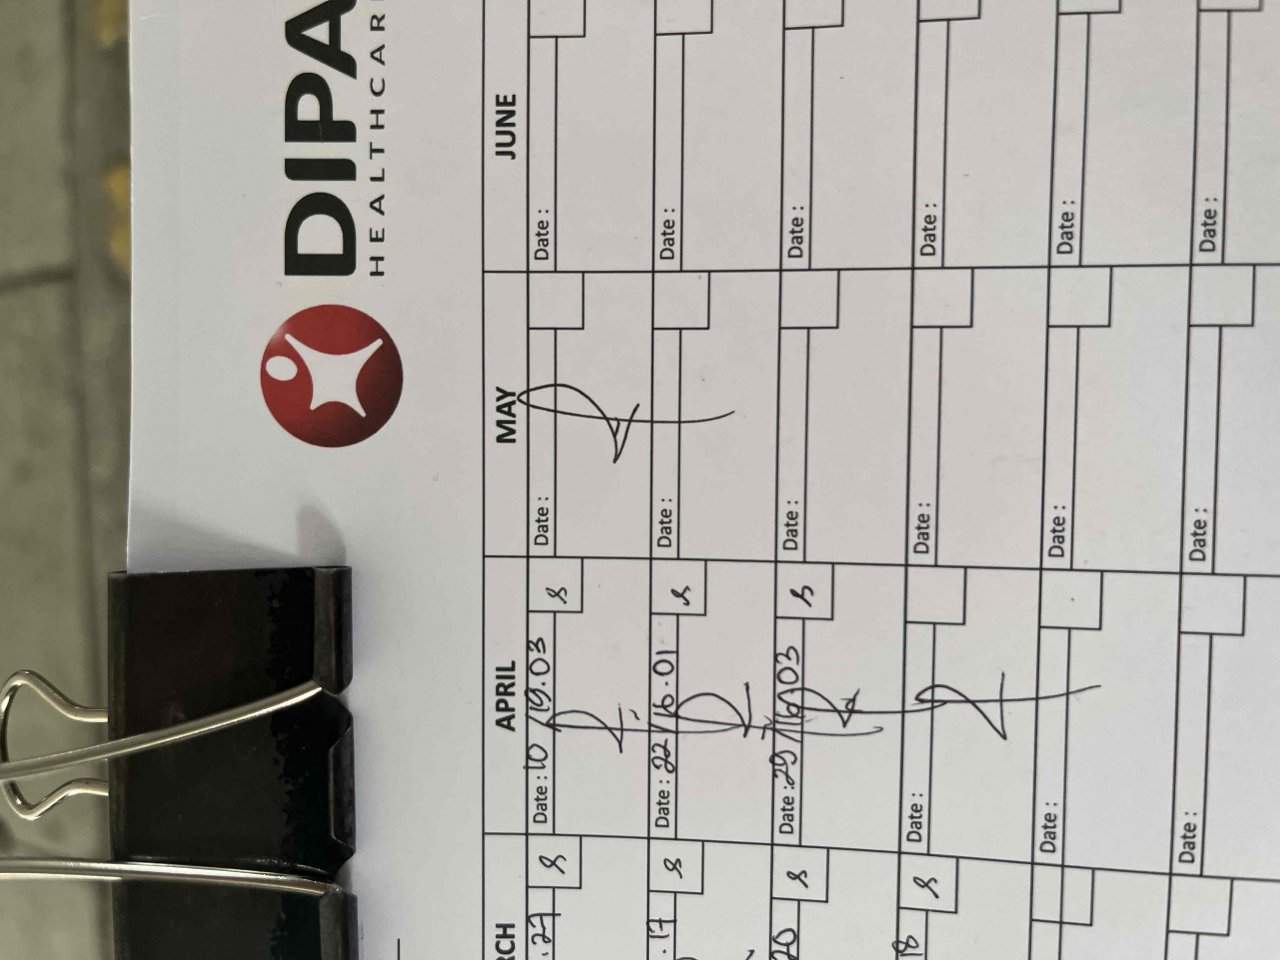 DIPA
HEALTHCAR
RCH APRIL MAY JUNE
.27 Date : 10/19.03 Date : Date :
S S
.17 Date : 22/16.01 Date : Date :
S S
20 Date : 29/16.03 Date : Date :
S S
18 Date : Date : Date :
S
Date : Date : Date :
Date : Date : Date :